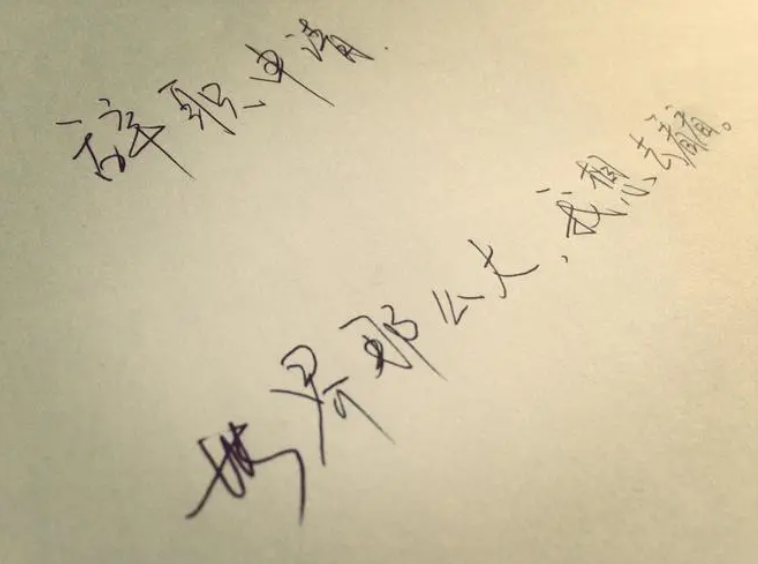 辞职申请.
世界那么大,我想去看看。